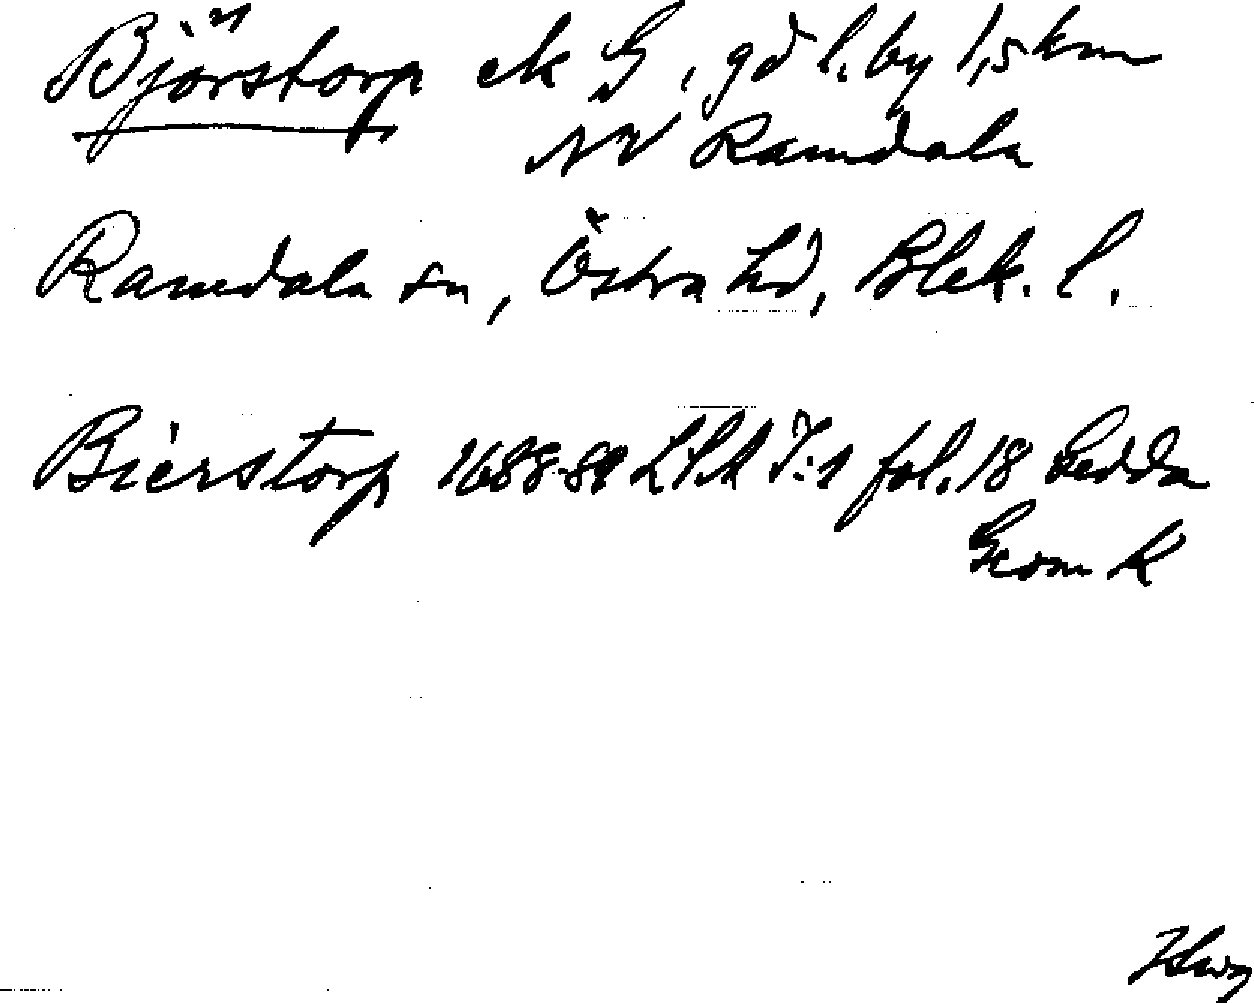 Björstorp ek G, gd l. by 1,5 km
NV Ramdala
Ramdala sn, Östra hd, Blek. l.
Bierstorp 1688-89 LSA I:1 fol. 18 Gedda
Geom K